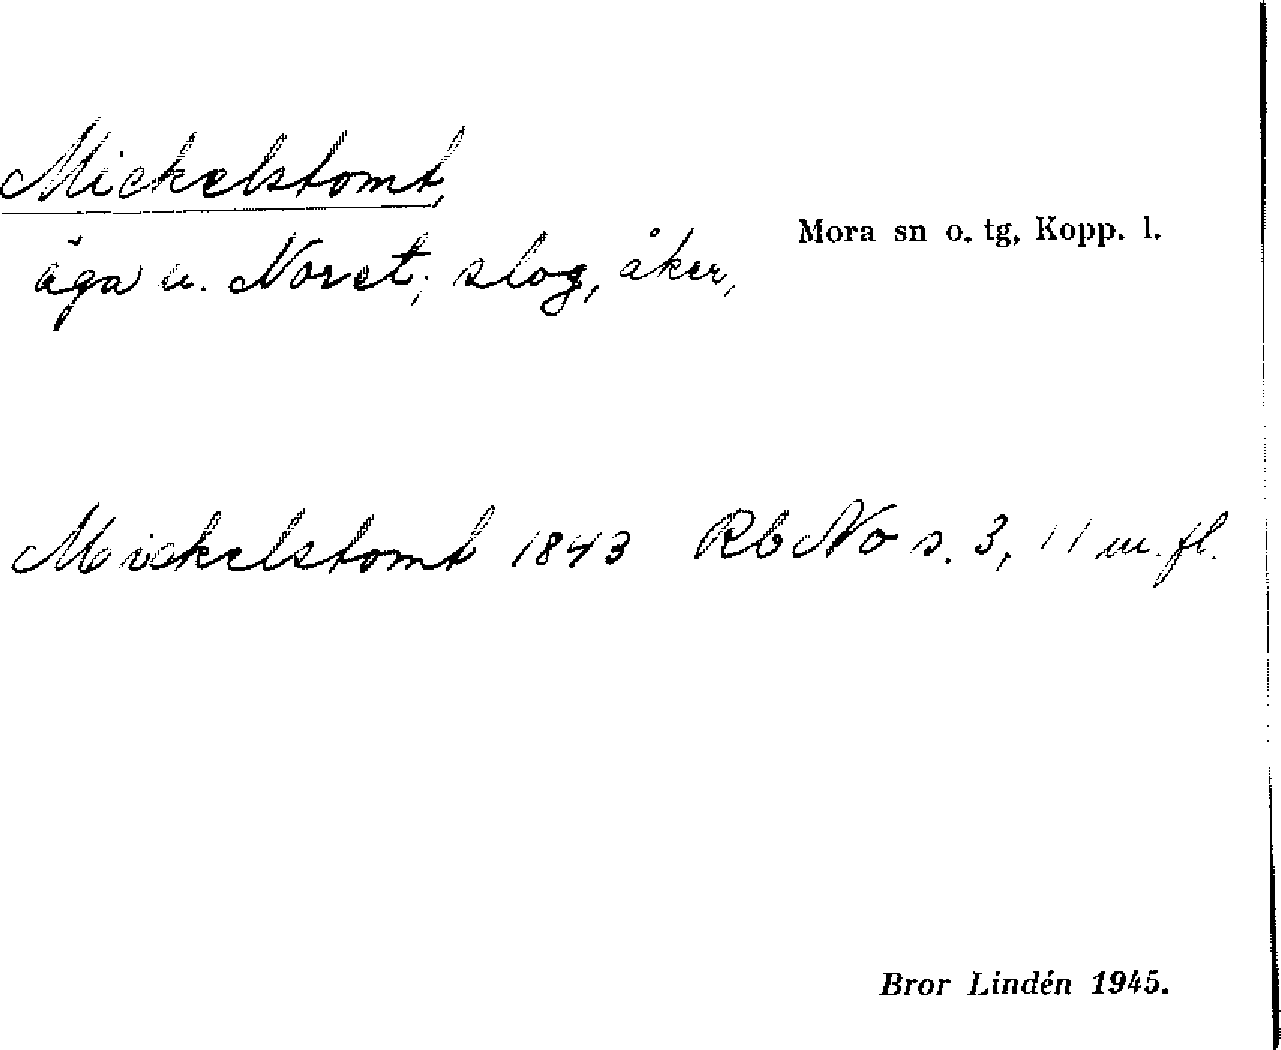 Mickelstomt,
Mora sn o. tg, Kopp. l.
äga u. Noret; slog, åker,
Mickelstomt 1843 Rb No s. 3, 11 m. fl.
Bror Lindén 1945.